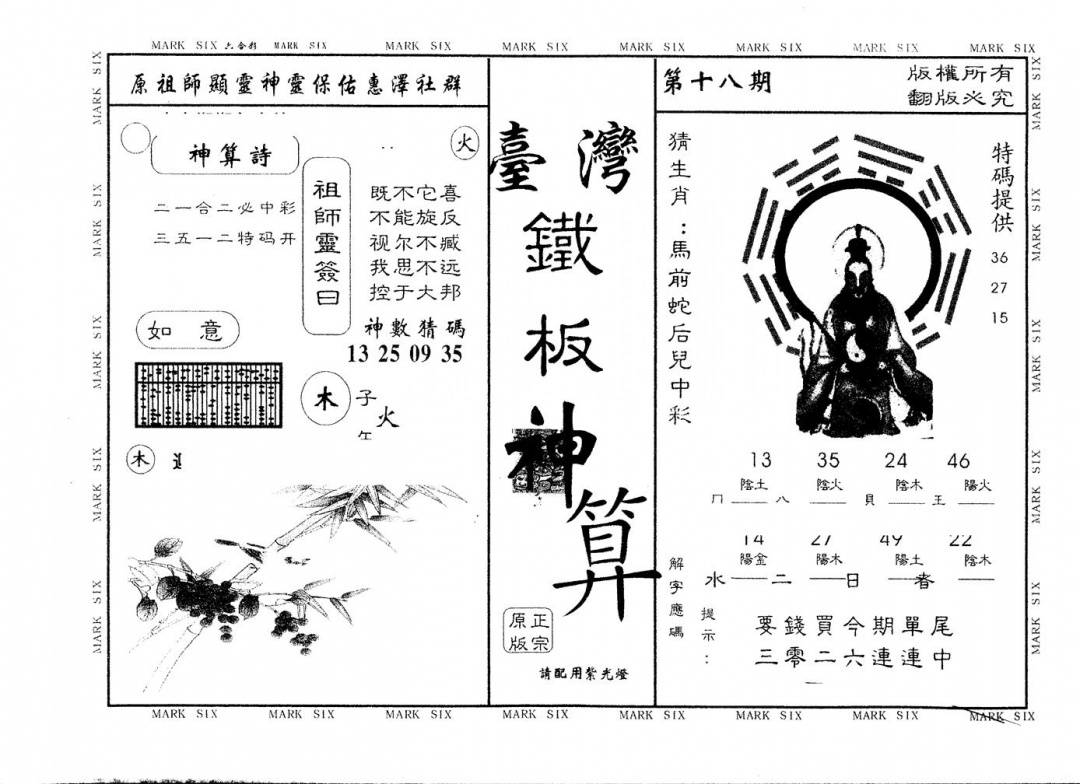 MARK SIX 六合彩 MARK SIX MARK SIX MARK SIX MARK SIX MARK SIX MARK SIX MARK SIX
原祖師顯靈神靈保佑惠澤社群
神算詩
二一合二必中彩
三五一二特码开
火
祖師靈簽曰
既不它喜
不能旋反
视尔不臧
我思不远
控于大邦
神數猜碼
13 25 09 35
如意
木
子
火
木
臺灣
鐵
板
神
算
正宗
原版
請配用紫光燈
第十八期
版權所有
翻版必究
猜生肖：馬前蛇后兒中彩
特碼提供
36
27
15
13 35 24 46
陰土 陰火 陰木 陽火
冂 八 貝 王
14 27 49 22
陽金 陽木 陽土 陰木
水 二 日 春
解字應碼
提示：
要錢買今期單尾
三零二六連連中
MARK SIX MARK SIX MARK SIX MARK SIX MARK SIX MARK SIX MARK SIX MARK SIX
MARK SIX MARK SIX MARK SIX MARK SIX MARK SIX
MARK SIX MARK SIX MARK SIX MARK SIX MARK SIX